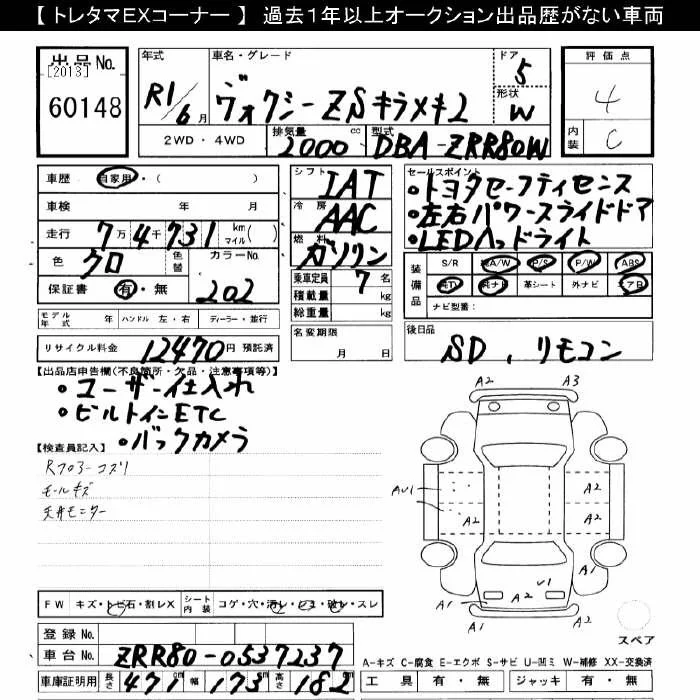 【 トレタマEXコーナー 】 過去1年以上オークション出品歴がない車両
出品No.
[2013]
60148
年式
R1/6月
車名・グレード
ヴォクシーZSキラメキ2
ドア
5
形状
W
2WD・4WD
排気量
2000 cc
型式
DBA-ZRR80W
評価点
4
内装
C
車歴 自家用・( )
車検 年 月
走行 7万4千731 km マイル( )
色 クロ 色替
カラーNo.
202
保証書 有・無
シフト
IAT
冷房
AAC
燃料
ガソリン
乗車定員 7 名
積載量 kg
総重量 kg
名変期限
月 日
セールスポイント
・トヨタセーフティセンス
・左右パワースライドドア
・LEDヘッドライト
装備品
S/R A/W P/S P/W ABS
純TV 純ナビ 革シート 外ナビ エアB
ナビ型番:
モデル年式 年 ハンドル 左・右 ディーラー・並行
リサイクル料金 12470円 預託済
後日品
SD、リモコン
【出品店申告欄(不良箇所・欠品・注意事項等)】
・ユーザー仕入れ
・ビルトインETC
・バックカメラ
【検査員記入】
Rフロアーコズリ
モールキズ
天井モニター
A2 A3
AU1 A2 A2
A2 A2
A1 A1
U1 A2
A1 A2 A1
スペア
FW キズ・トビ石・割レX シート内装 コゲ・穴・汚レ・シミ・破レ・スレ
登録No.
車台No. ZRR80-0537237
車庫証明用 長さ 471cm 幅 173cm 高さ 182cm
A-キズ C-腐食 E-エクボ S-サビ U-凹ミ W-補修 XX-交換済
工具 有・無 ジャッキ 有・無